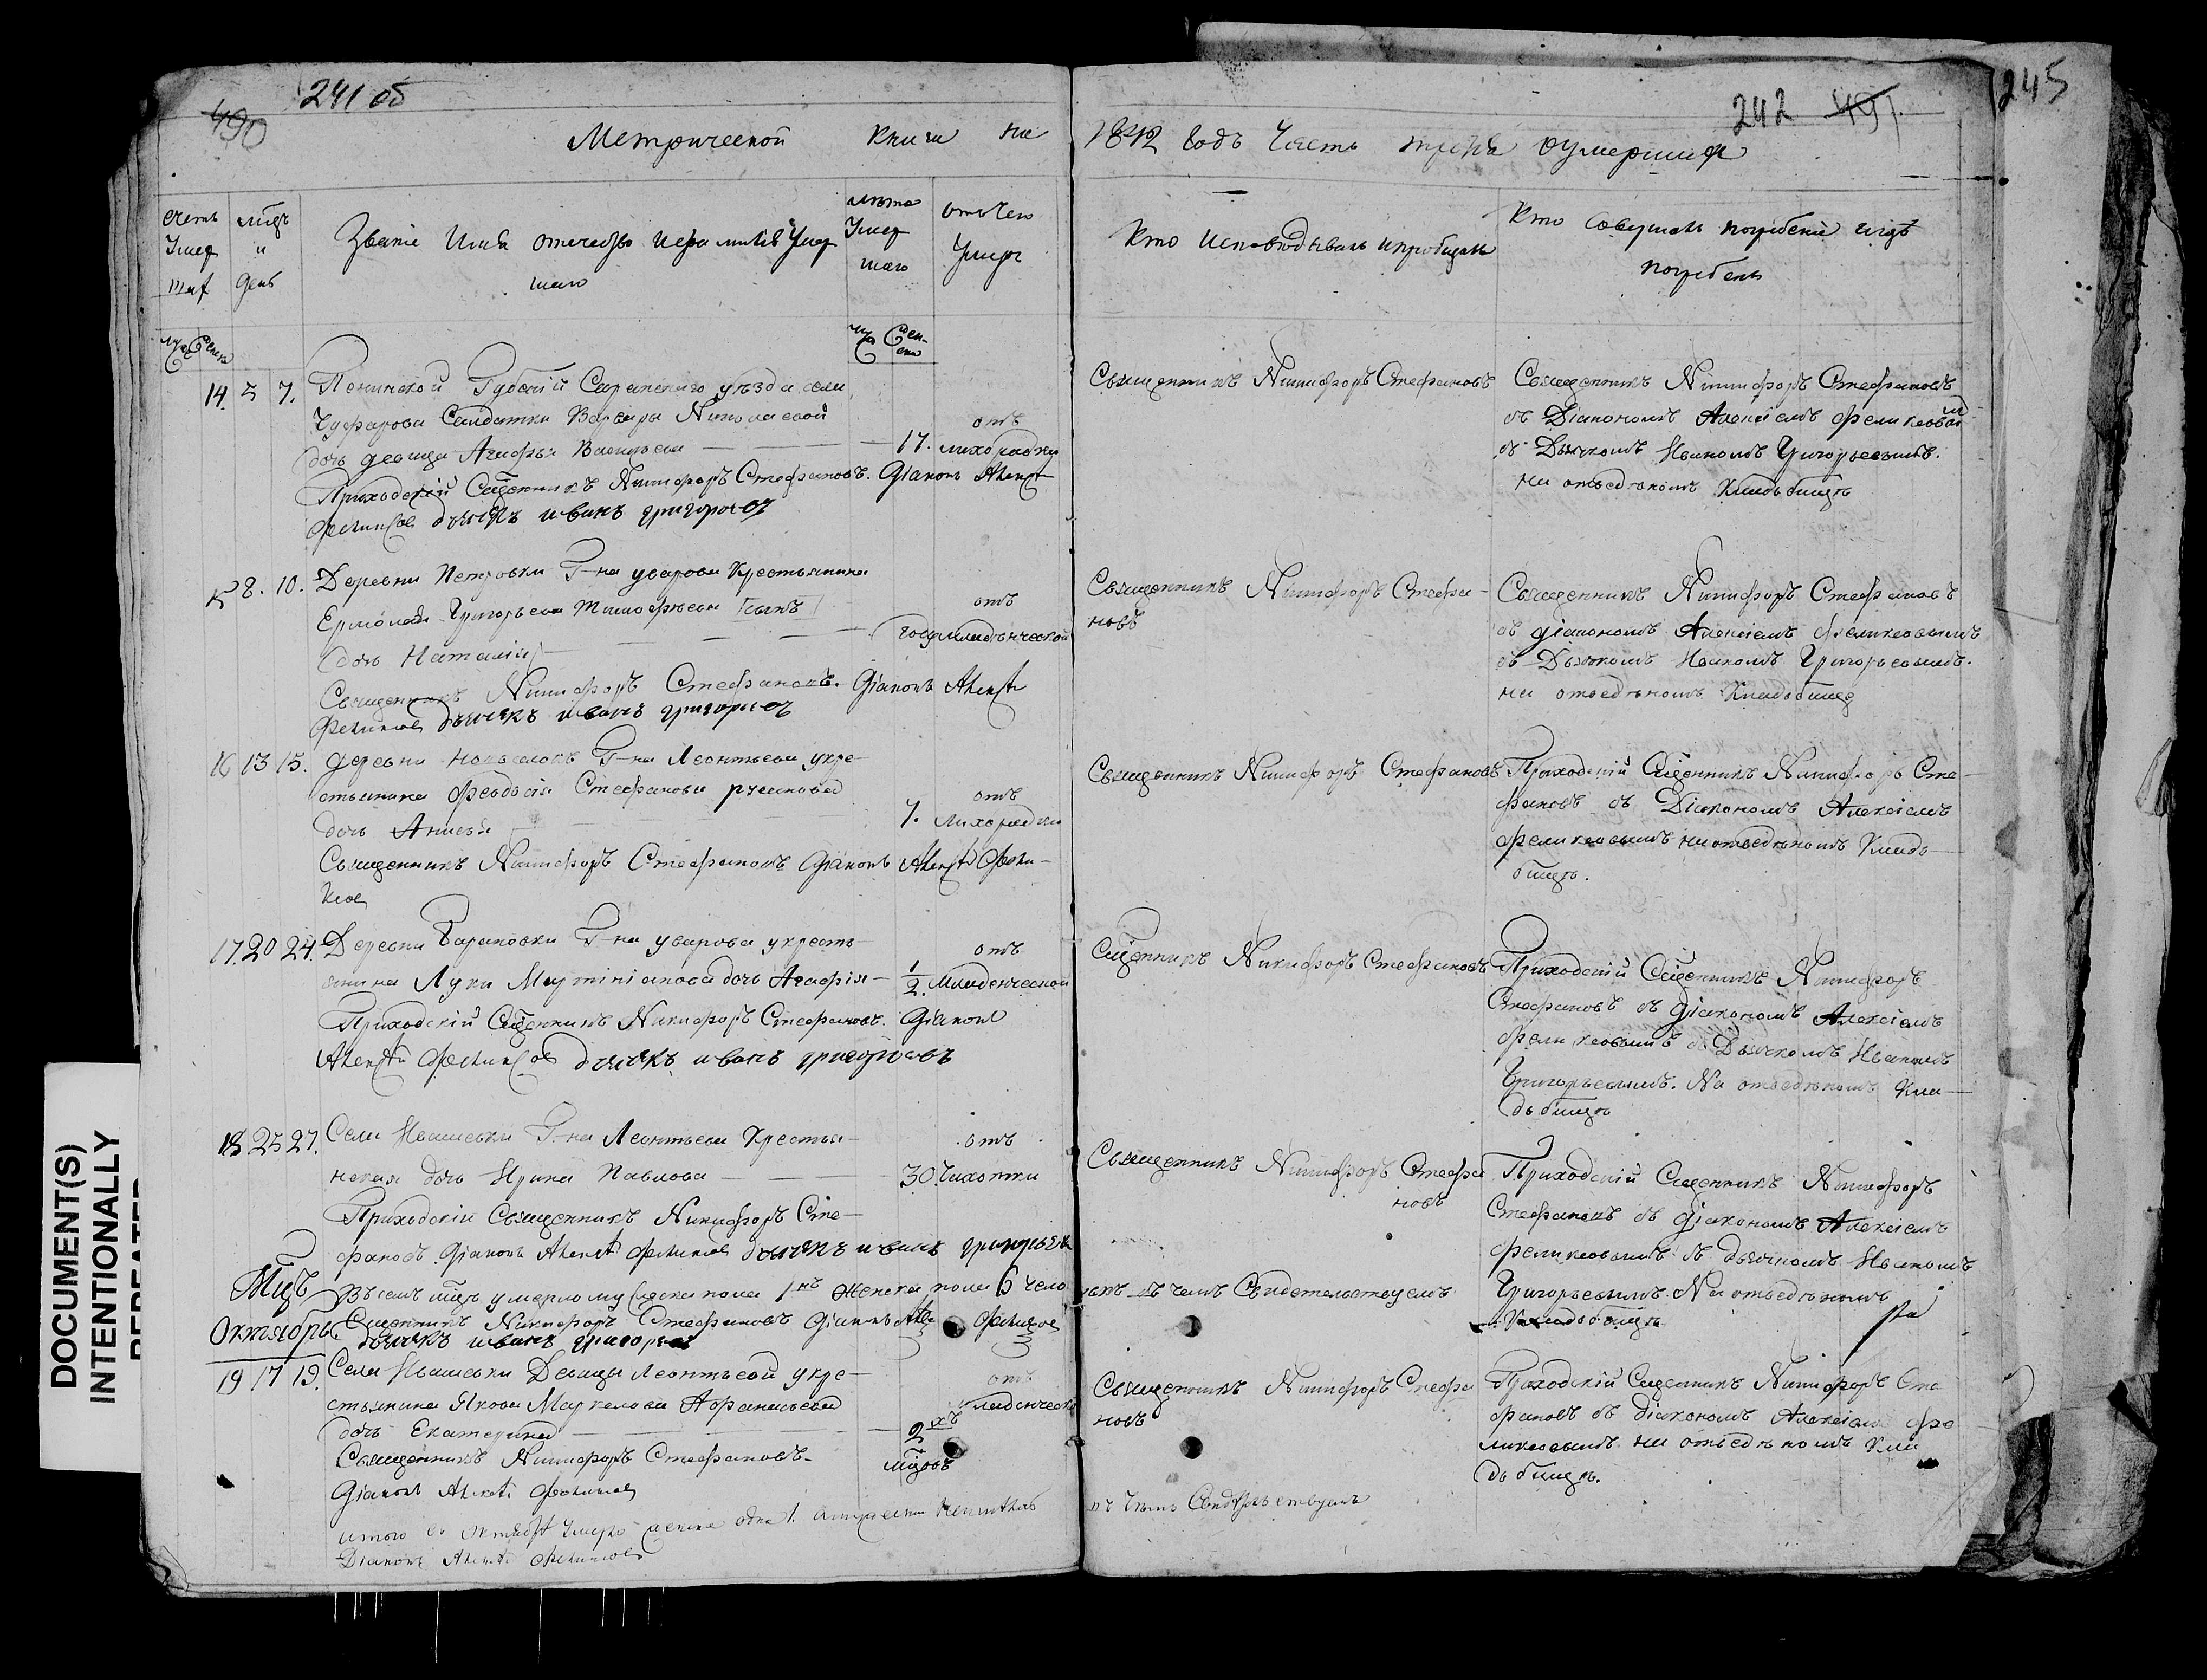 241 об
490
242 491
245
Метрической Книги на 1842 годъ Часть третія оумершихъ
счетъ Умер шихъ
мцъ и день
Званіе Имя отечество и фамилія Умер
шаго
лѣта Умер шаго
отъ чего Умеръ
Кто исповѣдывалъ и пріобщалъ
Кто Совершалъ погребеніе и гдѣ
погребенъ
14. 5 7. Пензинской Губерніи Саранскаго уѣзда села
Чуфарова Салдатки Варвары Николаевой
дочь девица Агафья Васильева 17. отъ лихорадки
Приходскій Сщенникъ Никифоръ Стефановъ. Діаконъ Алексѣй
Феликсовъ дьячекъ иванъ григорьевъ
Священникъ Никифоръ Стефановъ
Священникъ Никифоръ Стефановъ
съ Діакономъ Алексіемъ Феликсовымъ
съ Дьячкомъ Иваномъ Григорьевымъ.
на отведенномъ Кладбищѣ
8. 10. Деревни Петровки Г-на уварова Крестьянина
Ермолая Григорьева
дочь Наталія отъ младенческой
Священникъ Никифоръ Стефановъ. Діаконъ Алексѣй
Феликсовъ дьячекъ иванъ григорьевъ
Священникъ Никифоръ Стефа-
новъ
Священникъ Никифоръ Стефановъ
съ діакономъ Алексіемъ Феликсовымъ
съ Дьячкомъ Иваномъ Григорьевымъ.
на отведенномъ Кладбищѣ
16 13 15. деревни Г-на Леонтьева у кре-
стьянина Феодосія Стефанова
дочь 7. отъ Лихорадки
Священникъ Никифоръ Стефановъ Діаконъ Алексѣй Фели-
ксовъ
Священникъ Никифоръ Стефановъ
Приходскій Сщенникъ Никифоръ Сте-
фановъ съ Діакономъ Алексіемъ
Феликсовымъ на отведенномъ Клад-
бищѣ.
17. 20 24. Деревни Барановки Г-на уварова у кресть-
янина Луки Мартиніанова дочь Агафія 1/2. отъ Младенческой
Приходскій Сщенникъ Никифоръ Стефановъ. Діаконъ
Алексѣй Феликсовъ дьячекъ иванъ григорьевъ
Сщенникъ Никифоръ Стефановъ
Приходскій Сщенникъ Никифоръ
Стефановъ съ діакономъ Алексіемъ
Феликсовымъ съ Дьячкомъ Иваномъ
Григорьевымъ. На отведенномъ Кла-
дбищѣ
18 25 27. Села Ивашевки Г-на Леонтьева Крестья-
нская дочь Ирина Павлова 30. отъ Чахотки
Приходскій Священникъ Никифоръ Сте-
фановъ Діаконъ Алексѣй Феликсовъ дьячекъ иванъ григорьевъ
Священникъ Никифоръ Стефа
новъ
Приходскій Сщенникъ Никифоръ
Стефановъ съ діакономъ Алексіемъ
Феликсовымъ съ дьячкомъ Иваномъ
Григорьевымъ. На отведенномъ
Кладбищѣ
Въ семъ мцѣ умерло мужеска пола 1 женска пола 6 чело
вѣкъ въ чемъ Свидетельствуемъ
Сщенникъ Никифоръ Стефановъ Діаконъ Феликсовъ
дьячекъ иванъ григорьевъ
Мцъ
Октябрь
19 17 19. Села Ивашевки Девицы Леонтьевой у кре-
стьянина Якова Маркелова Афанасьева
дочь Екатерина 2хъ мцовъ отъ младенческой
Священникъ Никифоръ Стефановъ.
Діаконъ Алексѣй Феликсовъ
Священникъ Никифоръ Стефа
новъ
Приходскій Сщенникъ Никифоръ Сте
фановъ съ діакономъ Алексіемъ Фе
ликсовымъ на отведенномъ Кла
дбищѣ.
итого въ Октябрѣ умерло женска одна 1.
въ чемъ Свидѣтельствуемъ
Діаконъ Алексѣй Феликсовъ
DOCUMENT(S)
INTENTIONALLY